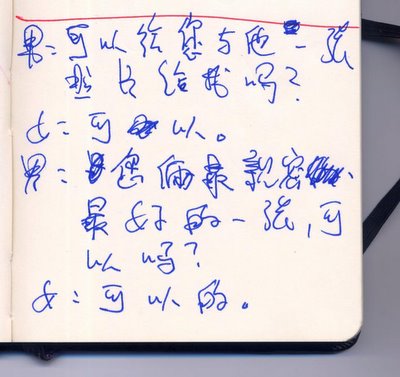 男:可以给您与他一张
照片给我吗?
女:可以。
男:您俩最亲密
最好的一张,可
以吗?
女:可以的。